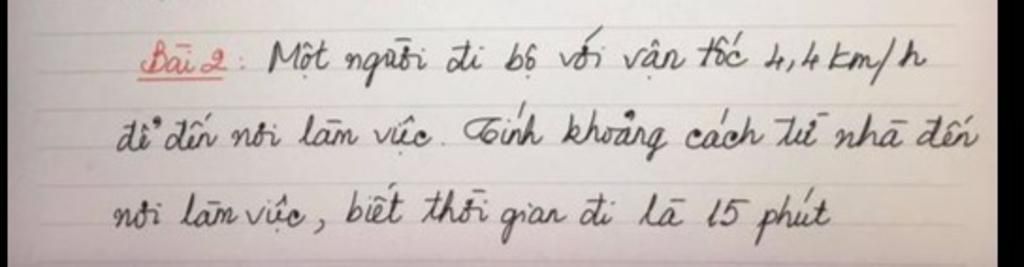 Bài 2: Một người đi bộ với vận tốc 4,4 km/h
để đến nơi làm việc. Tính khoảng cách từ nhà đến
nơi làm việc, biết thời gian đi là 15 phút